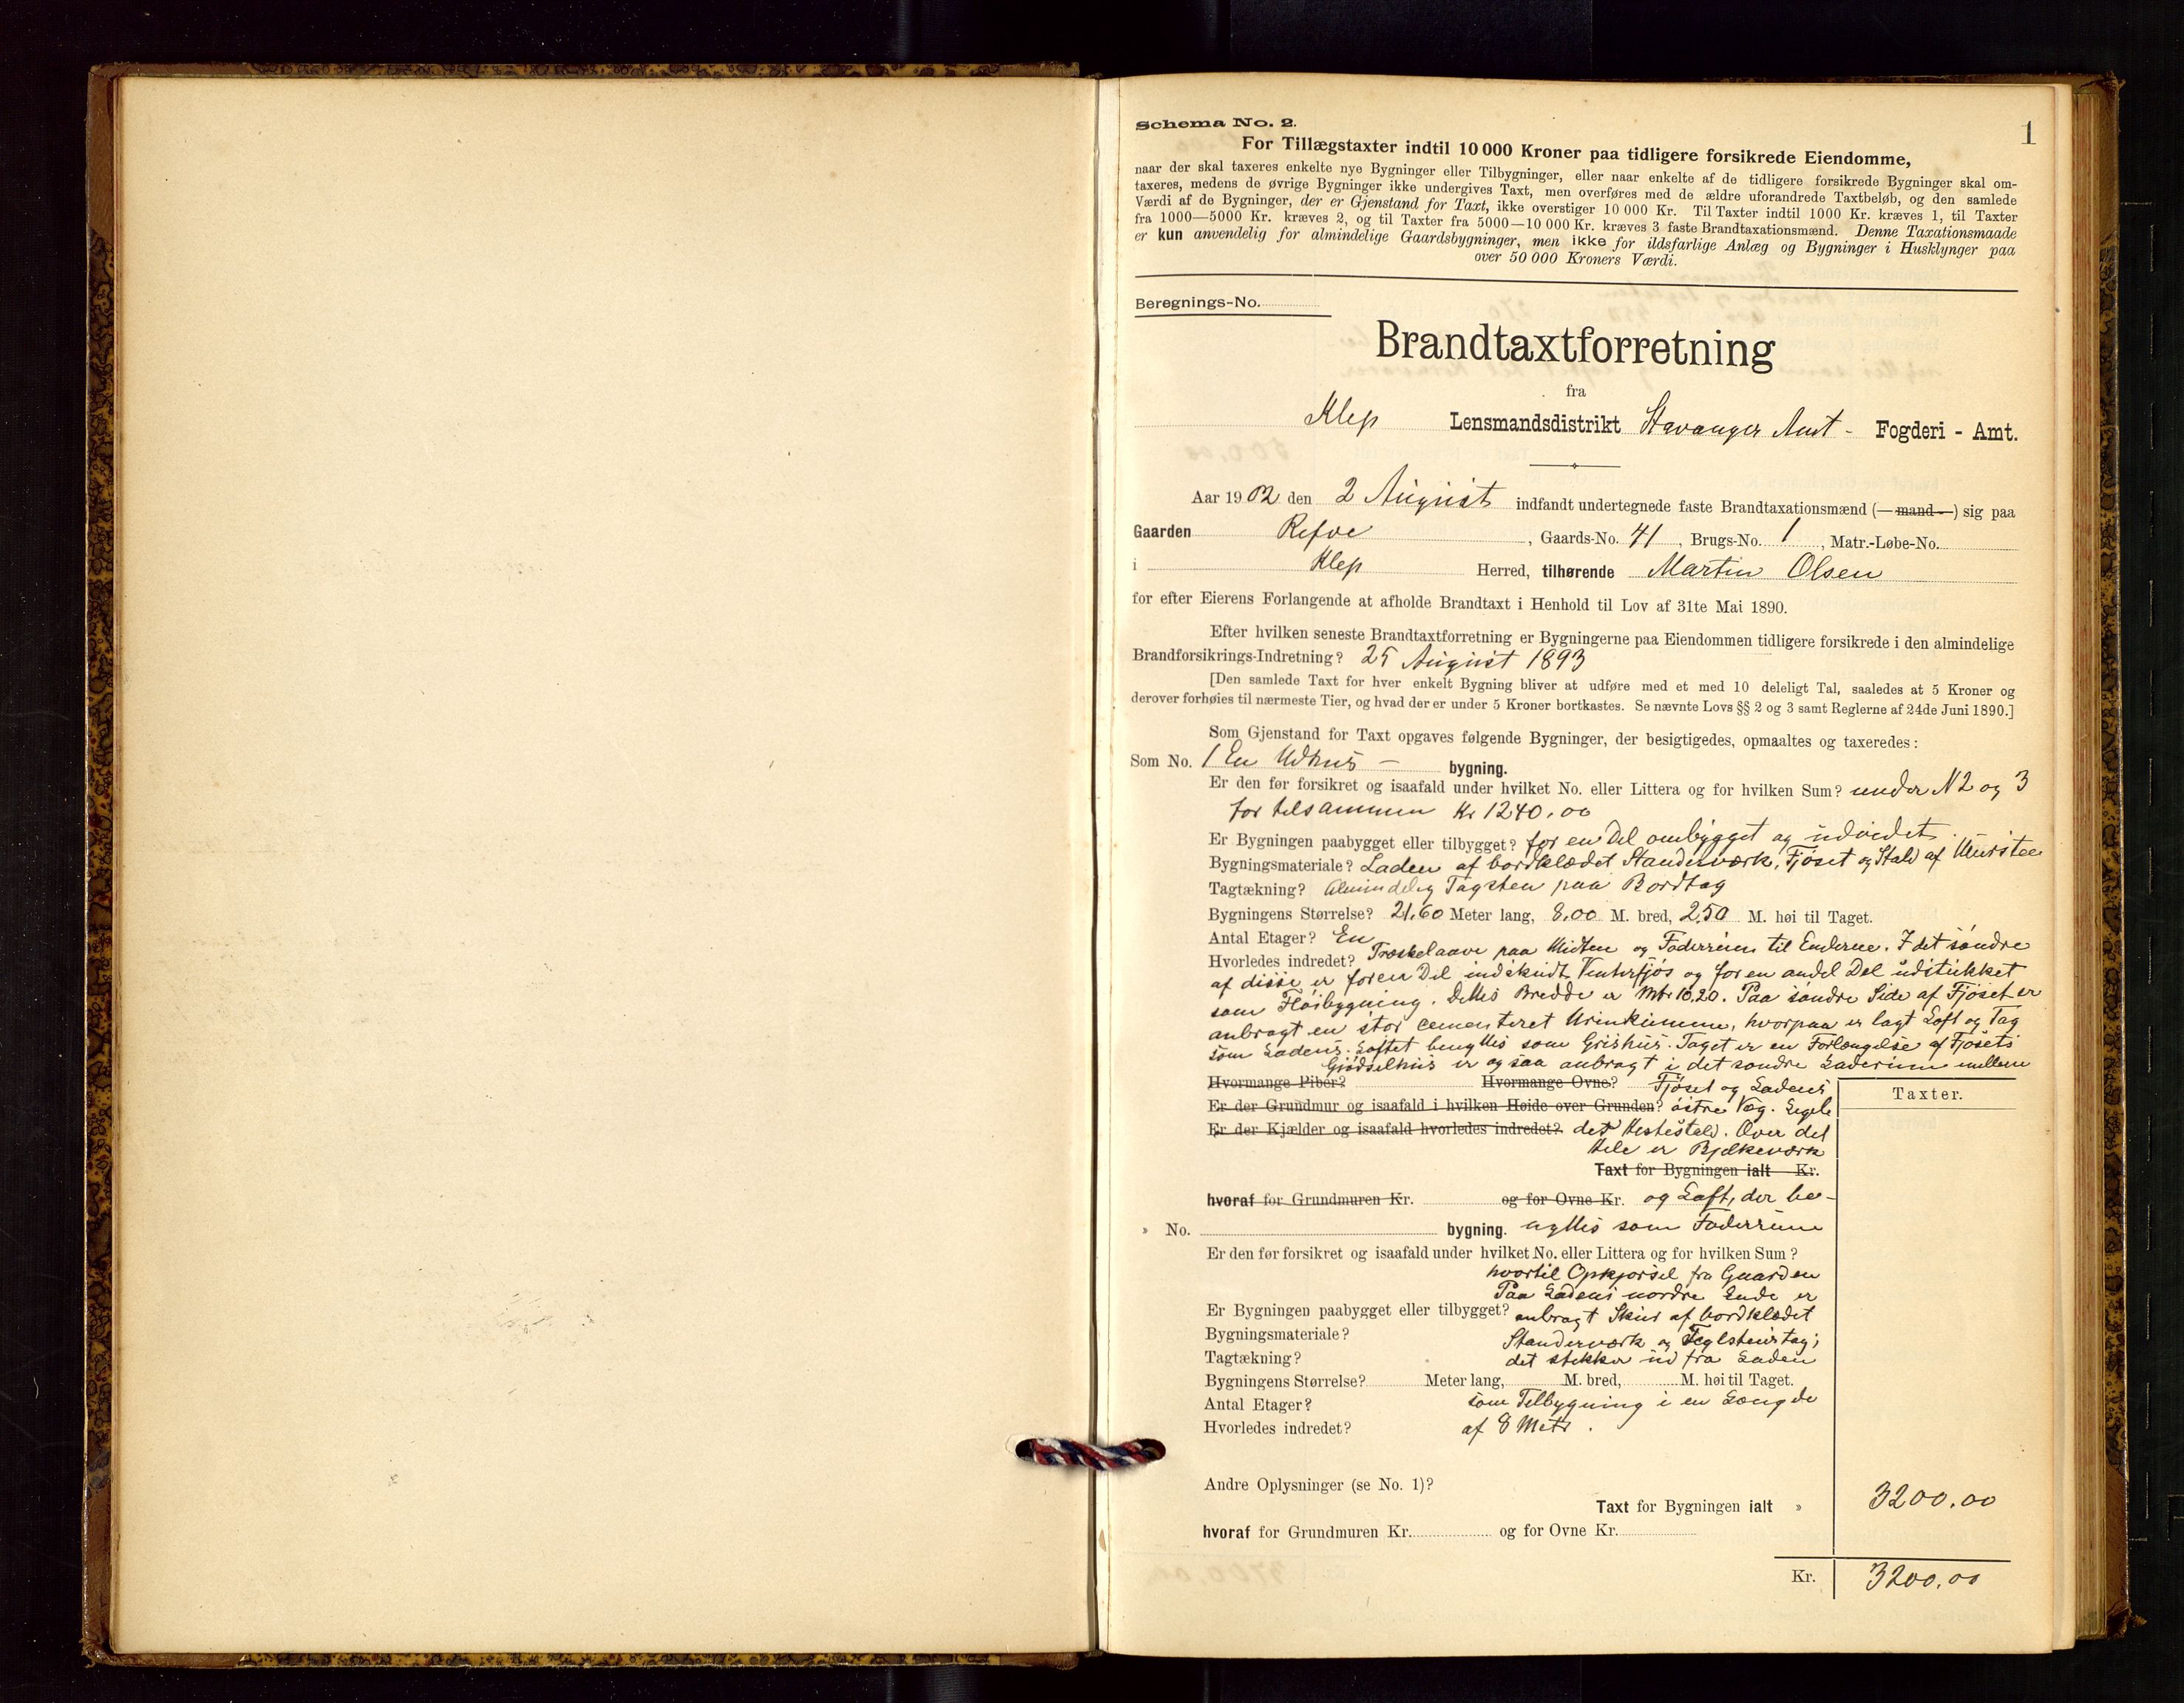 1
Schema No. 2.
For Tillægstaxter indtil 10 000 Kroner paa tidligere forsikrede Eiendomme,
naar der skal taxeres enkelte nye Bygninger eller Tilbygninger, eller naar enkelte af de tidligere forsikrede Bygninger skal om-
taxeres, medens de øvrige Bygninger ikke undergives Taxt, men overføres med de ældre uforandrede Taxtbeløb, og den samlede
Værdi af de Bygninger, der er Gjenstand for Taxt, ikke overstiger 10 000 Kr. Til Taxter indtil 1000 Kr. kræves 1, til Taxter
fra 1000—5000 Kr. kræves 2, og til Taxter fra 5000—10 000 Kr. kræves 3 faste Brandtaxationsmænd. Denne Taxationsmaade
er kun anvendelig for almindelige Gaardsbygninger, men ikke for ildsfarlige Anlæg og Bygninger i Husklynger paa
over 50 000 Kroners Værdi.
Beregnings-No.
Brandtaxtforretning
fra
Klep Lensmandsdistrikt Stavanger Amt - Fogderi - Amt.
Aar 1902 den 2 August indfandt undertegnede faste Brandtaxationsmænd (—mand—) sig paa
Gaarden Refve, Gaards-No. 41, Brugs-No. 1, Matr.-Løbe-No.
i Klep Herred, tilhørende Martin Olsen
for efter Eierens Forlangende at afholde Brandtaxt i Henhold til Lov af 31te Mai 1890.
Efter hvilken seneste Brandtaxtforretning er Bygningerne paa Eiendommen tidligere forsikrede i den almindelige
Brandforsikrings-Indretning? 25 August 1893
[Den samlede Taxt for hver enkelt Bygning bliver at udføre med et med 10 deleligt Tal, saaledes at 5 Kroner og
derover forhøies til nærmeste Tier, og hvad der er under 5 Kroner bortkastes. Se nævnte Lovs §§ 2 og 3 samt Reglerne af 24de Juni 1890.]
Som Gjenstand for Taxt opgaves følgende Bygninger, der besigtigedes, opmaaltes og taxeredes:
Som No. 1 En Udhus - bygning.
Er den før forsikret og isaafald under hvilket No. eller Littera og for hvilken Sum? under N 2 og 3
for tilsammen Kr 1240.00
Er Bygningen paabygget eller tilbygget? for en Del ombygget og udvidet.
Bygningsmateriale? Laden af bordklædet Standerværk, Fjøset og Stald af Mursten
Tagtækning? Almindelig Tagsten paa Bordtag
Bygningens Størrelse? 21.60 Meter lang, 8.00 M. bred, 2.50 M. høi til Taget.
Antal Etager? En
Hvorledes indredet? Træskelaave paa Midten og Foderrum til Enderne. I det søndre
af disse er for en Del indskudt Vinterfjøs og for en andel Del udstukket
som Fløibygning. Dettes Bredde er Mtr 10.20. Paa søndre Side af Fjøset er
anbragt en stor cementeret Urinkumme, hvorpaa er lagt Loft og Tag
som Ladens. Loftet benyttes som Grishus. Taget er en Forlængelse af Fjøsets
Gjødselhus er og saa anbragt i det søndre Laderum mellem
Hvormange Piber? Hvormange Ovne? Fjøset og Ladens
Er der Grundmur og isaafald i hvilken Høide over Grunden? østre Væg. Ligele
Er der Kjælder og isaafald hvorledes indredet? det Hestestald. Over det
Hele er Bjelkeværk
Taxt for Bygningen ialt Kr.
hvoraf for Grundmuren Kr. og for Ovne Kr. og Loft, der be-
» No. bygning. nyttes som Foderrum
Er den før forsikret og isaafald under hvilket No. eller Littera og for hvilken Sum?
hvortil Opkjørsel fra Gaarden
Paa Ladens nordre Ende er
Er Bygningen paabygget eller tilbygget? anbragt Skur af bordklædet
Bygningsmateriale? Standerværk og Teglstenstag;
Tagtækning? det stikker ud fra Laden
Bygningens Størrelse? Meter lang, M. bred, M. høi til Taget.
Antal Etager? som Tilbygning i en Længde
Hvorledes indredet? af 8 Metr.
Andre Oplysninger (se No. 1)?
Taxt for Bygningen ialt »
hvoraf for Grundmuren Kr. og for Ovne Kr.
Taxter.
3200.00
Kr. 3200.00